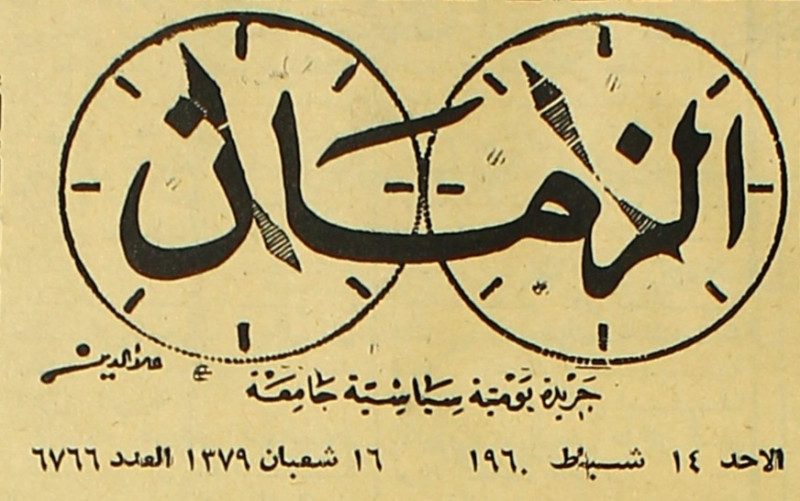 الزمان
علاء الدين
جريدة يومية سياسية جامعة
الاحد ١٤ شباط ١٩٦٠ ١٦ شعبان ١٣٧٩ العدد ٦٧٦٦